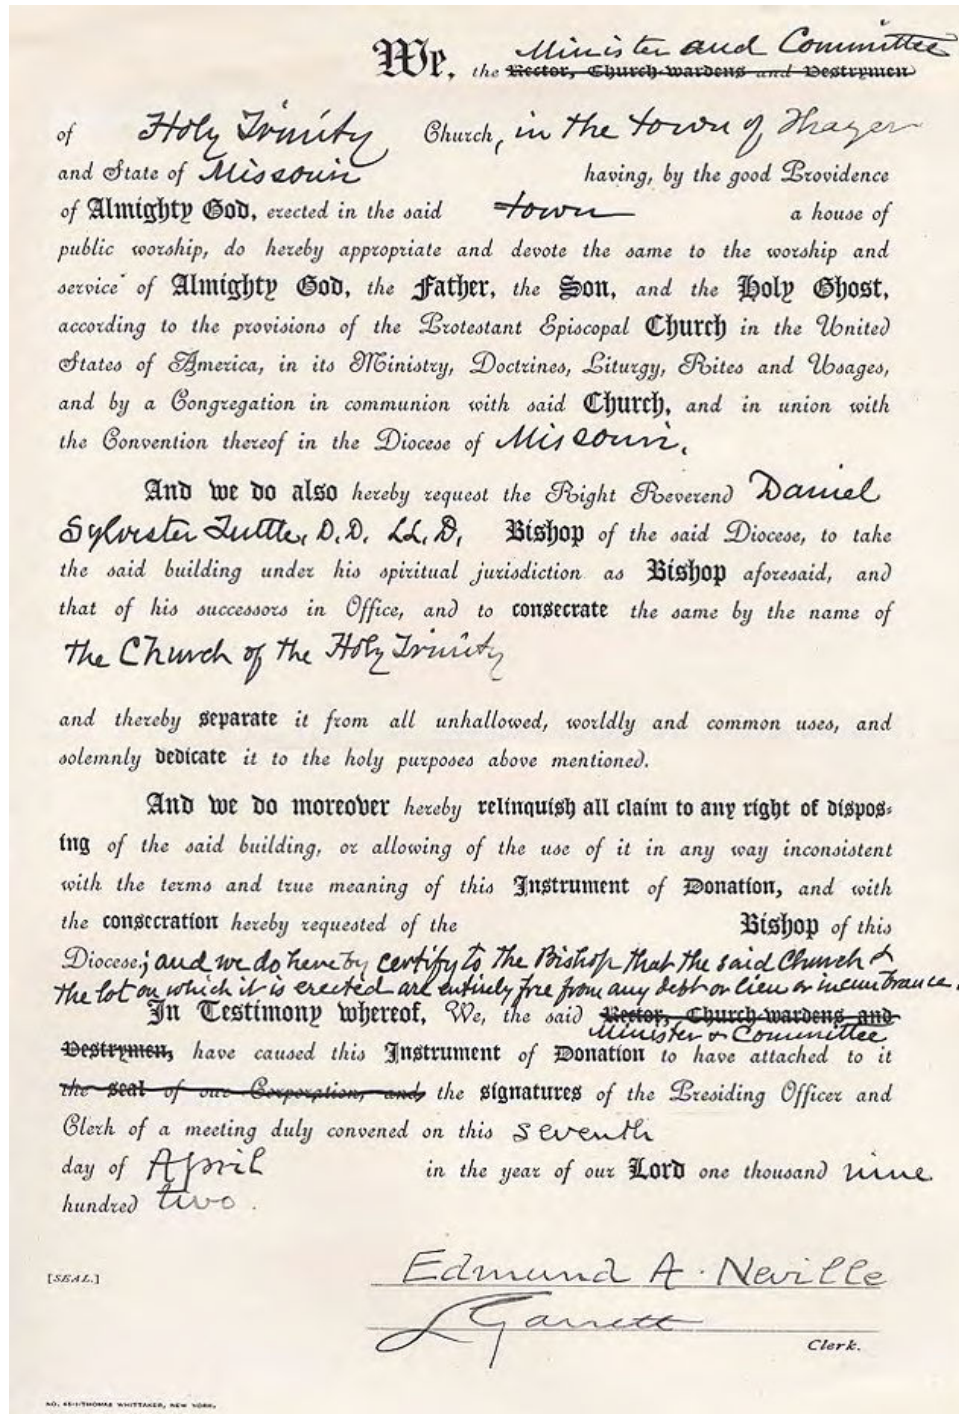 Minister and Committee
We, the Rector, Church-wardens and Vestrymen
of Holy Trinity Church, in the town of Thayer
and State of Missouri having, by the good Providence
of Almighty God, erected in the said town a house of
public worship, do hereby appropriate and devote the same to the worship and
service of Almighty God, the Father, the Son, and the Holy Ghost,
according to the provisions of the Protestant Episcopal Church in the United
States of America, in its Ministry, Doctrines, Liturgy, Rites and Usages,
and by a Congregation in communion with said Church, and in union with
the Convention thereof in the Diocese of Missouri.
And we do also hereby request the Right Reverend Daniel
Sylvester Tuttle, D.D. LL.D, Bishop of the said Diocese, to take
the said building under his spiritual jurisdiction as Bishop aforesaid, and
that of his successors in Office, and to consecrate the same by the name of
the Church of the Holy Trinity
and thereby separate it from all unhallowed, worldly and common uses, and
solemnly dedicate it to the holy purposes above mentioned.
And we do moreover hereby relinquish all claim to any right of dispos-
ing of the said building, or allowing of the use of it in any way inconsistent
with the terms and true meaning of this Instrument of Donation, and with
the consecration hereby requested of the Bishop of this
Diocese; and we do hereby certify to the Bishop that the said Church &
the lot on which it is erected are entirely free from any debt or lien or incumbrance.
In Testimony whereof, We, the said Rector, Church-wardens and
Minister & Committee
Vestrymen, have caused this Instrument of Donation to have attached to it
the seal of our Corporation, and, the signatures of the Presiding Officer and
Clerk of a meeting duly convened on this seventh
day of April in the year of our Lord one thousand nine
hundred two.
Edmund A. Neville
[SEAL.]
L Garrett
Clerk.
NO. 45-1/THOMAS WHITTAKER, NEW YORK.